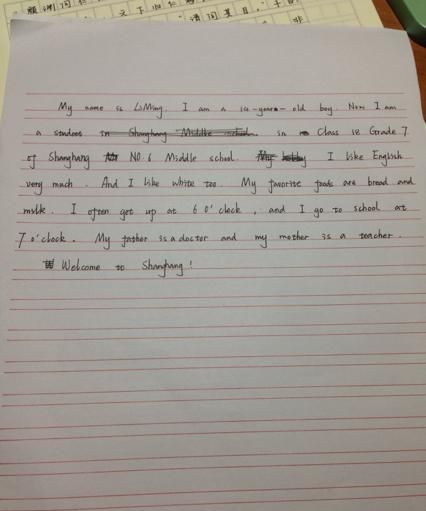 顔 渊 问 仁
My name is LiMing. I am a 14-years-old boy. Now I am
a student in Shanghang Middle school in Class 18 Grade 7
of Shanghang NO.6 Middle school. My I like English
very much. And I like white too. My favorite foods are bread and
milk. I often get up at 6 o'clock, and I go to school at
7 o'clock. My father is a doctor and my mother is a teacher.
Welcome to Shanghang!